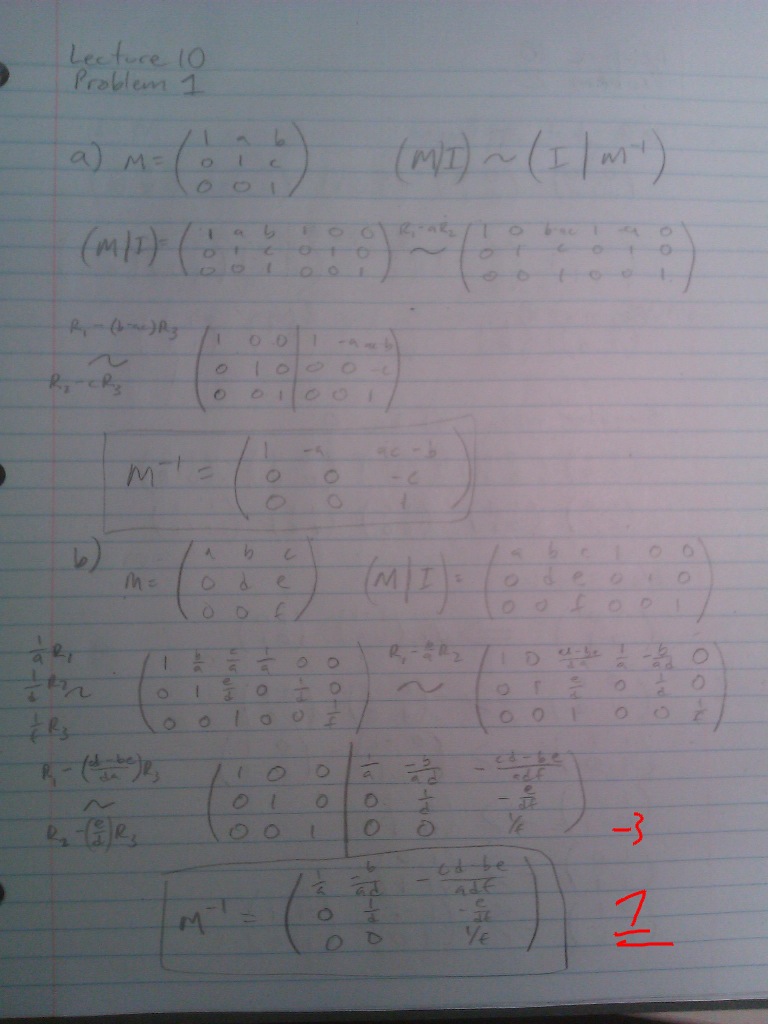 Lecture 10
Problem 1
a) M = ( 1 a b ; 0 1 c ; 0 0 1 ) (M|I) ~ (I | M⁻¹)
(M|I) = ( 1 a b 1 0 0 ; 0 1 c 0 1 0 ; 0 0 1 0 0 1 ) R₁-aR₂ ~ ( 1 0 b-ac 1 -a 0 ; 0 1 c 0 1 0 ; 0 0 1 0 0 1 )
R₁-(b-ac)R₃ ~ R₂-cR₃ ( 1 0 0 | 1 -a ac-b ; 0 1 0 | 0 0 -c ; 0 0 1 | 0 0 1 )
M⁻¹ = ( 1 -a ac-b ; 0 0 -c ; 0 0 1 )
b) M = ( a b c ; 0 d e ; 0 0 f ) (M|I) = ( a b c 1 0 0 ; 0 d e 0 1 0 ; 0 0 f 0 0 1 )
1/a R₁ 1/d R₂ ~ 1/f R₃ ( 1 b/a c/a 1/a 0 0 ; 0 1 e/d 0 1/d 0 ; 0 0 1 0 0 1/f ) R₁-b/a R₂ ~ ( 1 0 (cd-be)/da 1/a -b/ad 0 ; 0 1 e/d 0 1/d 0 ; 0 0 1 0 0 1/f )
R₁-((cd-be)/da)R₃ ~ R₂-(e/d)R₃ ( 1 0 0 | 1/a -b/ad -(cd-be)/adf ; 0 1 0 | 0 1/d -e/df ; 0 0 1 | 0 0 1/f )
-3
M⁻¹ = ( 1/a -b/ad -(cd-be)/adf ; 0 1/d -e/df ; 0 0 1/f )
7